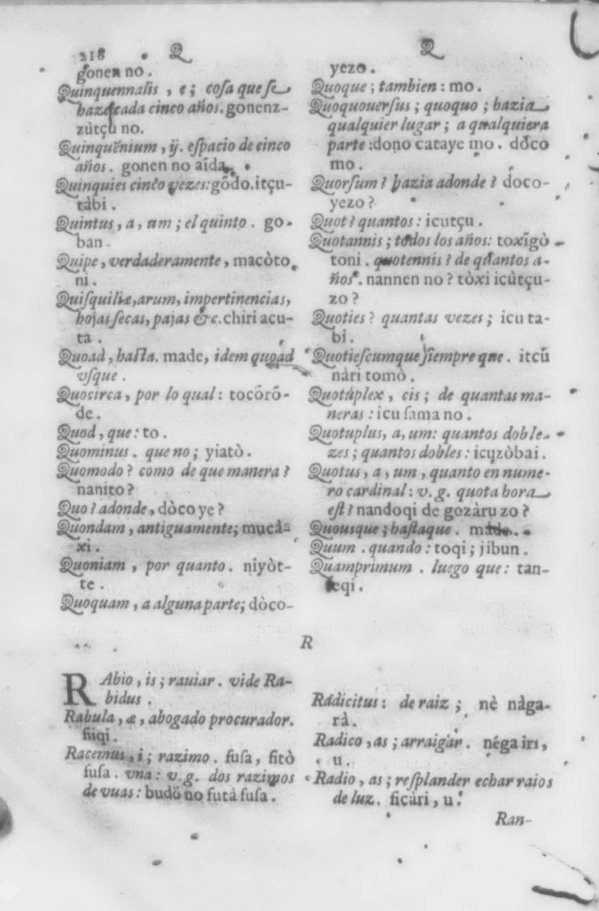 218
Q
gonen no.
Quinquennalis, e; cosa que se
haze cada cinco años. gonenz-
zutçu no.
Quinquēnium, ij. espacio de cinco
años. gonen no aida.
Quinquies cinco vezes: gŏdo. itçu-
tabi.
Quintus, a, um; el quinto. go-
ban.
Quipe, verdaderamente, macòto
ni.
Quisquiliæ, arum, impertinencias,
hojas secas, pajas &c. chiri acu-
ta.
Quoad, hasta. made, idem quoad
vsque.
Quocirca, por lo qual: tocŏrŏ-
de.
Quod, que: to.
Quominus. que no; yiatò.
Quomodo? como de que manera?
nanito?
Quo? adonde, dòco ye?
Quondam, antiguamente; mucà-
xi.
Quoniam, por quanto. niyòt-
te.
Quoquam, a alguna parte; dòco-
Q
yezo.
Quoque; tambien: mo.
Quoquouersus; quoquo; hazia
qualquier lugar; a qualquiera
parte: dono cataye mo. dŏco
mo.
Quorsum? hazia adonde? doco-
yezo?
Quot? quantos: icutçu.
Quotannis; todos los años: toxigò
toni. quotennis? de quantos a-
ños. nannen no? tòxi icùtçu-
zo?
Quoties? quantas vezes; icu ta-
bi.
Quotiescumque siempre que. itcŭ
nàri tomò.
Quotuplex, cis; de quantas ma-
neras: icu sama no.
Quotuplus, a, um: quantos doble-
zes; quantos dobles: icuzòbai.
Quotus, a, um, quanto en nume-
ro cardinal: v. g. quota hora
est? nandoqi de gozàru zo?
Quousque; hastaque. made.
Quum. quando: toqi; jibun.
Quamprimum. luego que: tan-
teqi.
R
RAbio, is; rauiar. vide Ra-
bidus.
Rabula, æ, abogado procurador.
fiiqi.
Racemus, i; razimo. fusa, fitò
fusa. vna: v. g. dos razimos
de vuas: budŏ no futà fusa.
Radicitus: de raiz; nè nàga-
rà.
Radico, as; arraigàr. néga iri,
u.
Radio, as; resplander echar raios
de luz. ficàri, u.
Ran-